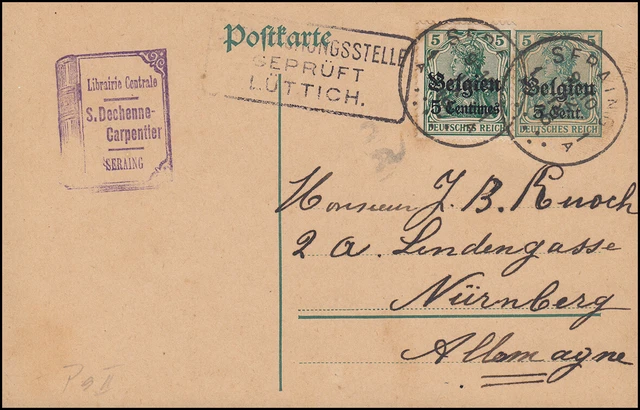 Postkarte
ÜNGSSTELLE
GEPRÜFT
LÜTTICH.
Librairie Centrale
S. Dechenne-
Carpentier
SERAING
5 5
Belgien
5 Centimes
DEUTSCHES REICH
5 5
Belgien
5 Cent.
DEUTSCHES REICH
SERAING
Monsieur J. B. Knoch
2 a. Lindengasse
Nürnberg
Allemagne